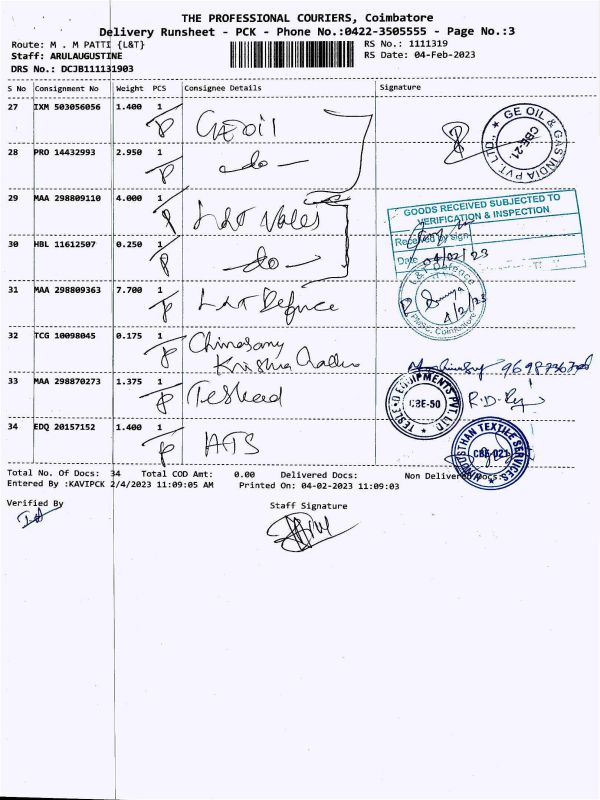 THE PROFESSIONAL COURIERS, Coimbatore
Delivery Runsheet - PCK - Phone No.:0422-3505555 - Page No.:3
Route: M . M PATTI {L&T}
RS No.: 1111319
Staff: ARULAUGUSTINE
RS Date: 04-Feb-2023
DRS No.: DCJB111131903
S No Consignment No Weight PCS Consignee Details Signature
27 IXM 503056056 1.400 1 GE OIL
GE OIL & GAS INDIA PVT. LTD
CBE-21.
28 PRO 14432993 2.950 1 - do -
29 MAA 298809110 4.000 1 L&T Valves
GOODS RECEIVED SUBJECTED TO
VERIFICATION & INSPECTION
Received by sign
Date 04/02/23
30 HBL 11612507 0.250 1 - do -
31 MAA 298809363 7.700 1 L&T Defence
L&T Defence
4/2/23
Coimbatore
32 TCG 10098045 0.175 1
33 MAA 298870273 1.375 1
EQUIPMENTS PVT. LTD
CBE-50
R.D.
34 EDQ 20157152 1.400 1 HTS
HINDUSTHAN TEXTILE SERVICES
CBE-021
Total No. Of Docs: 34 Total COD Amt: 0.00 Delivered Docs: Non Delivered Docs:
Entered By :KAVIPCK 2/4/2023 11:09:05 AM Printed On: 04-02-2023 11:09:03
Verified By
Staff Signature